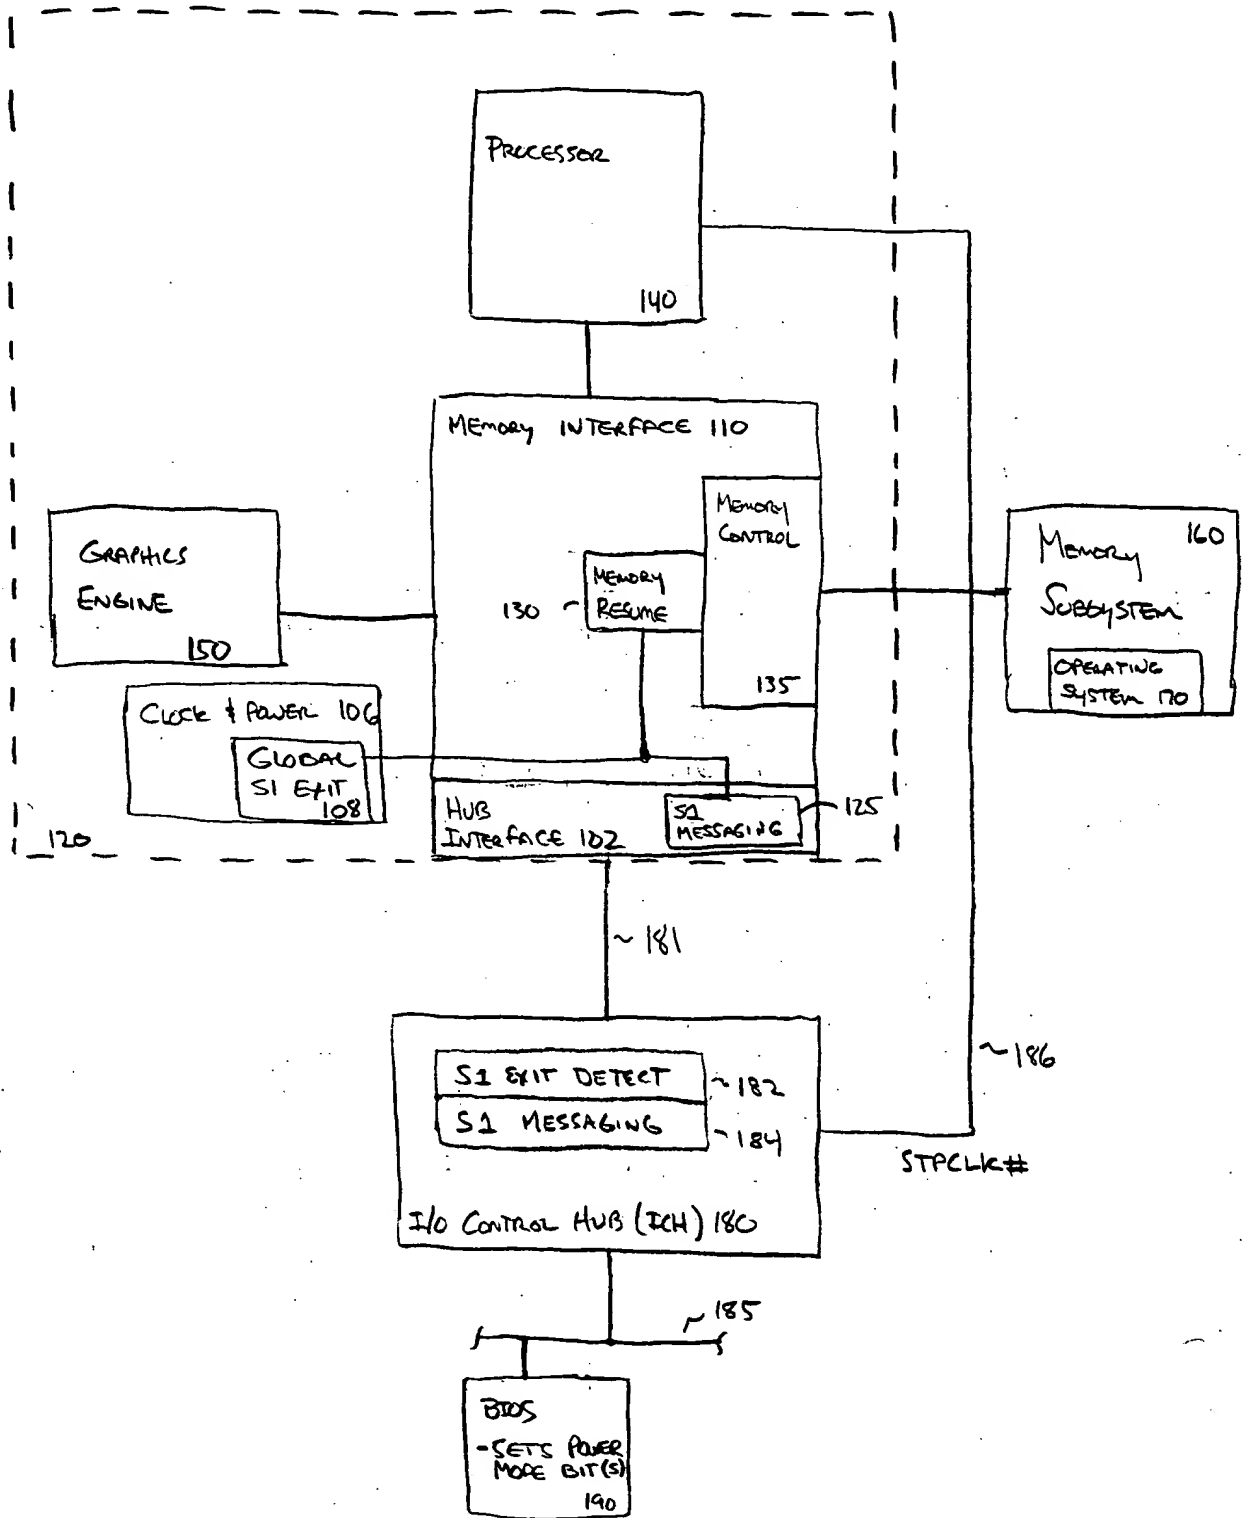 PROCESSOR
140
MEMORY INTERFACE 110
MEMORY
CONTROL
135
MEMORY
RESUME
130
GRAPHICS
ENGINE
150
CLOCK & POWER 106
GLOBAL
S1 EXIT
108
120
HUB
INTERFACE 102
S1
MESSAGING
125
160
MEMORY
SUBSYSTEM
OPERATING
SYSTEM 170
181
S1 EXIT DETECT
182
S1 MESSAGING
184
I/O CONTROL HUB (ICH) 180
186
STPCLK#
185
BIOS
-SETS POWER
MODE BIT(S)
190